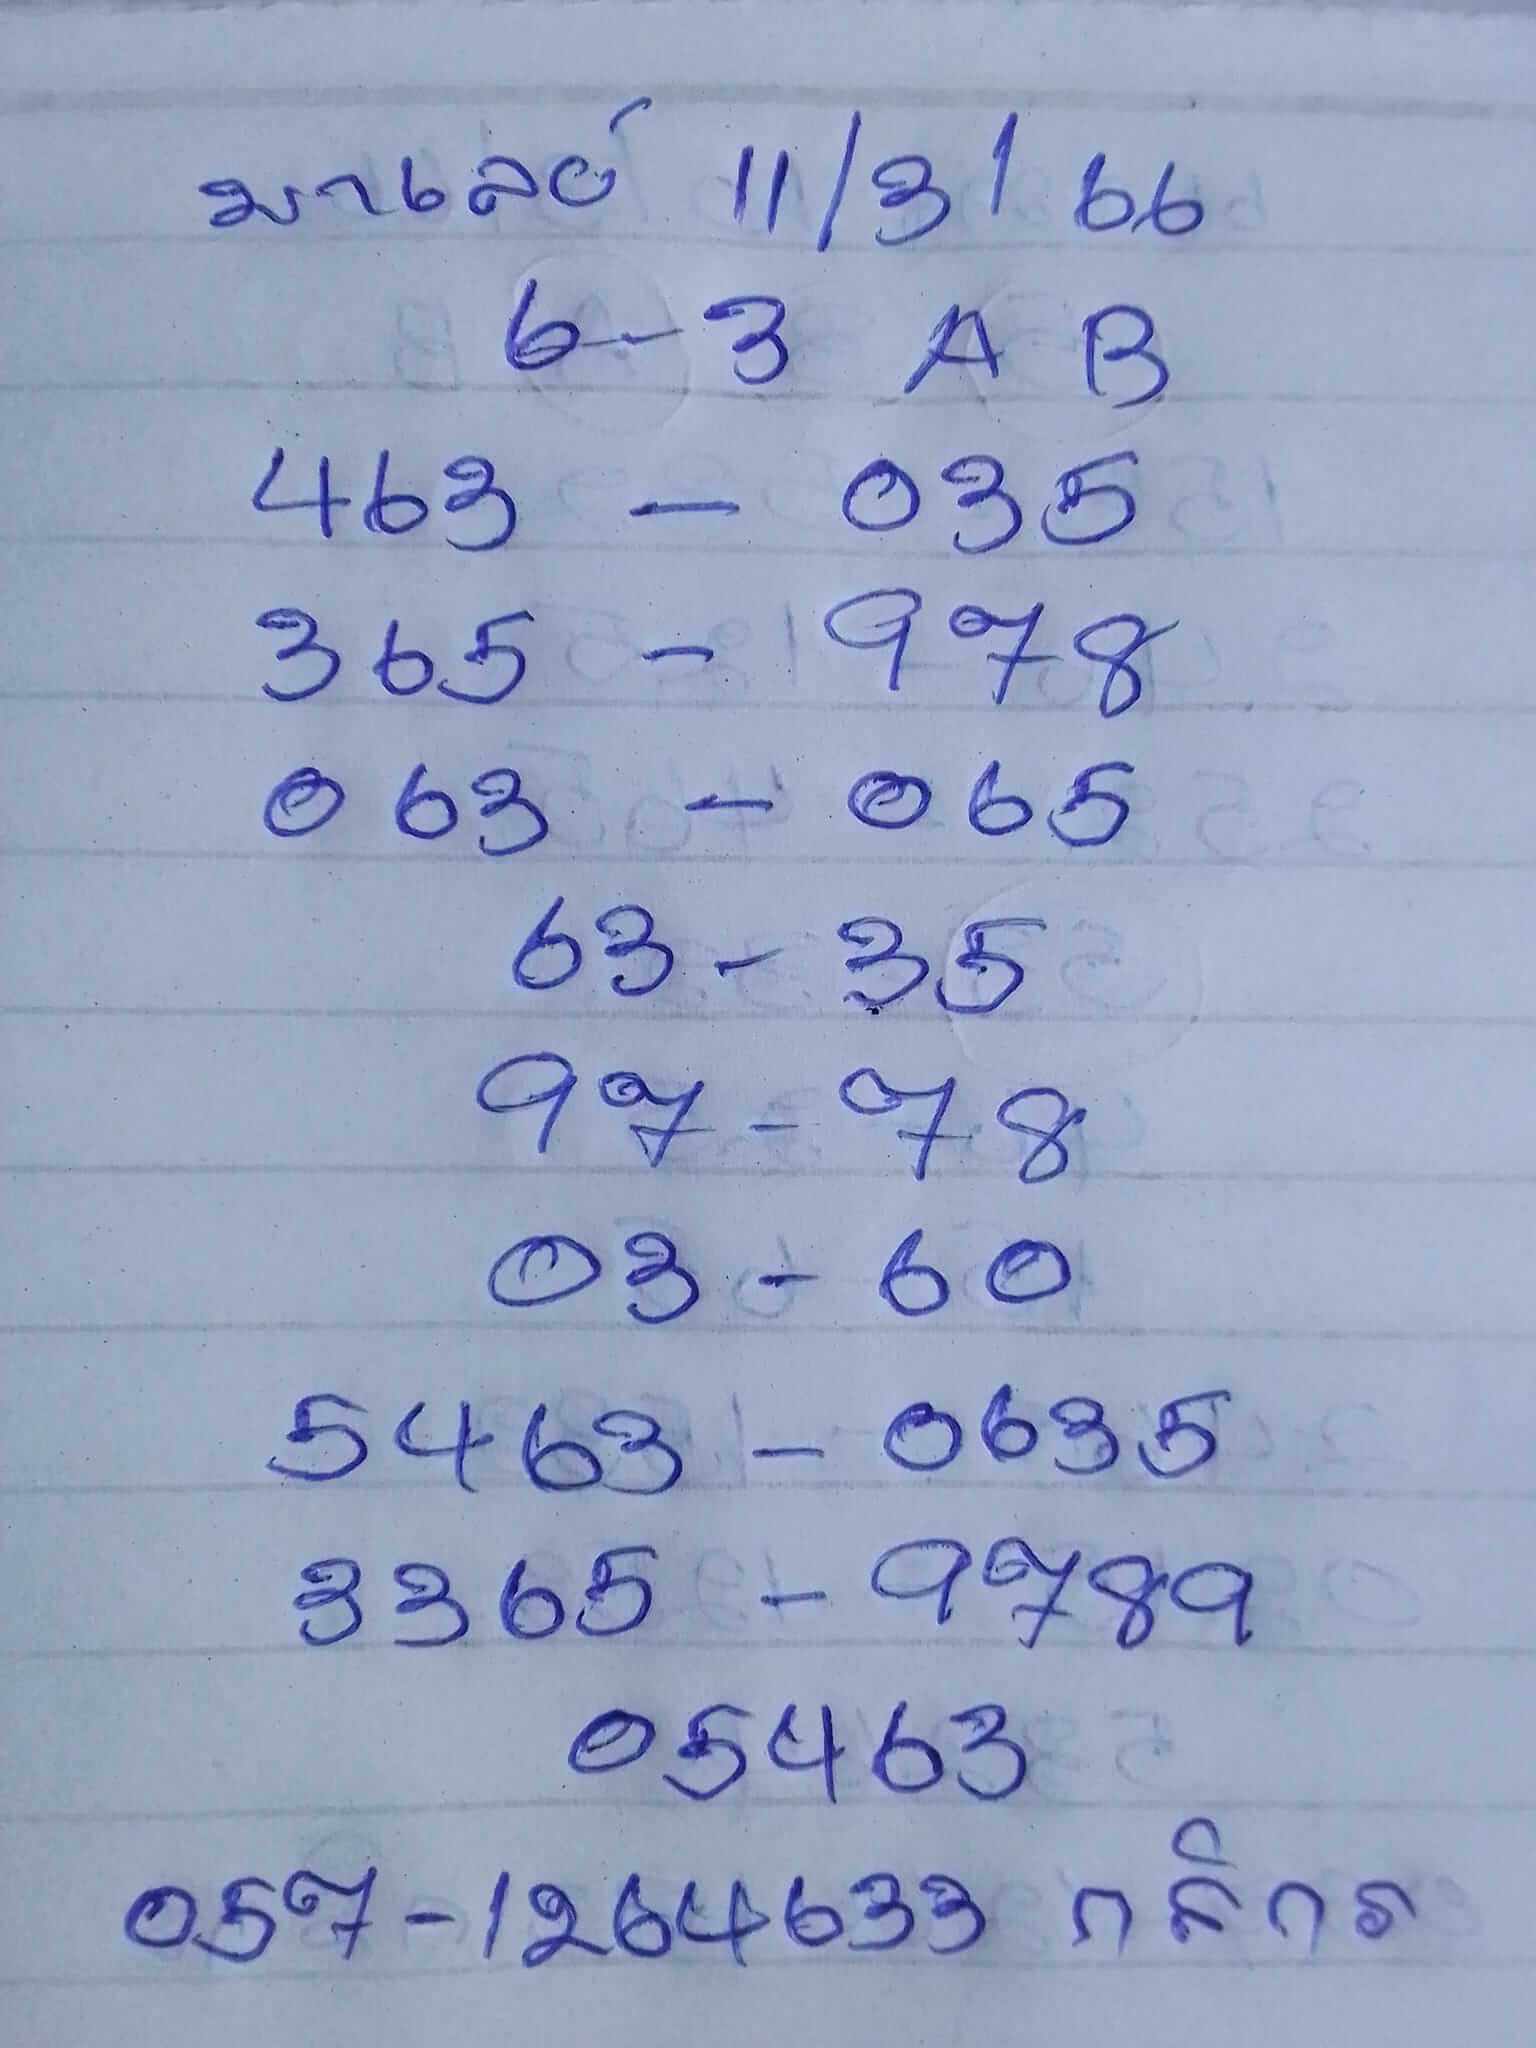 มาเลย์ 11/3/66
6-3 A B
463 - 035
365 - 978
063 - 065
63 - 35
97 - 78
03 - 60
5463 - 0635
3365 - 9789
05463
057-1264633 กสิกร